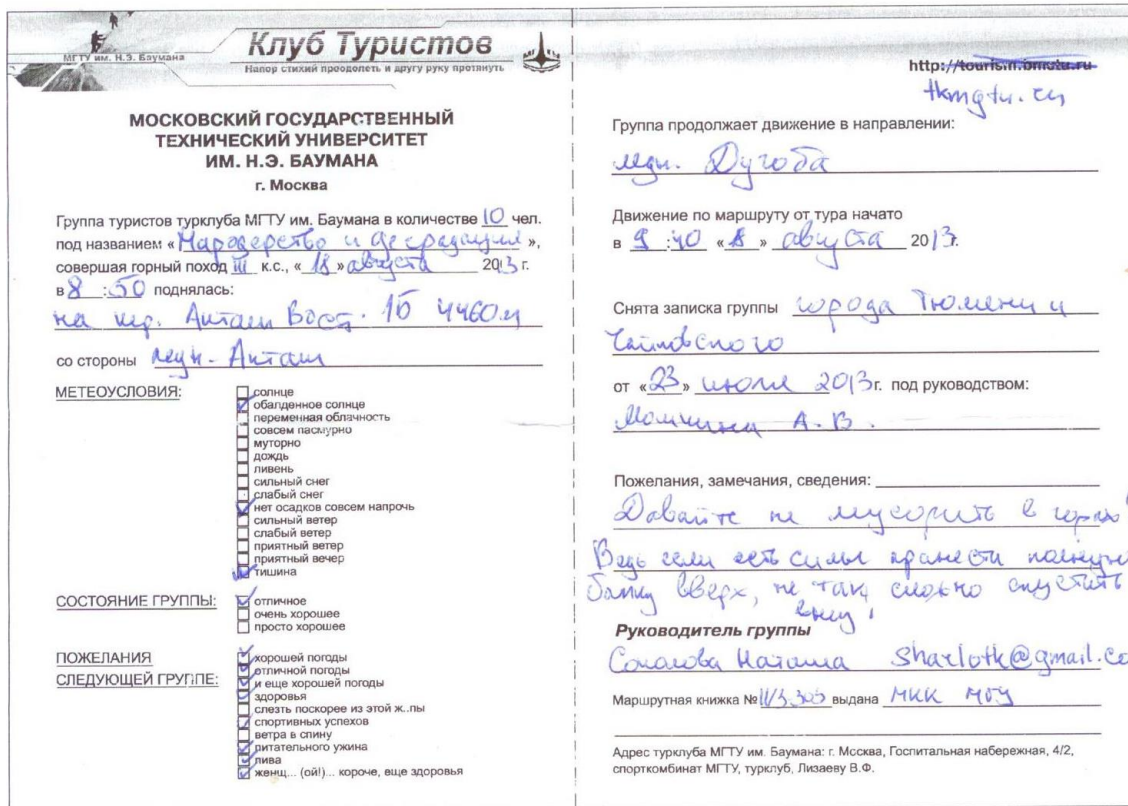 МГТУ им. Н.Э. Баумана
Клуб Туристов
Напор стихий преодолеть и другу руку протянуть
МОСКОВСКИЙ ГОСУДАРСТВЕННЫЙ
ТЕХНИЧЕСКИЙ УНИВЕРСИТЕТ
ИМ. Н.Э. БАУМАНА
г. Москва
Группа туристов турклуба МГТУ им. Баумана в количестве 10 чел.
под названием «Мародерство и деградация»,
совершая горный поход III к.с., «18» августа 2013 г.
в 8:50 поднялась:
на пер. Акташ Вост. 1б 4460м
со стороны ледн. Акташ
МЕТЕОУСЛОВИЯ:
солнце
обалденное солнце
переменная облачность
совсем пасмурно
муторно
дождь
ливень
сильный снег
слабый снег
нет осадков совсем напрочь
сильный ветер
слабый ветер
приятный ветер
приятный вечер
тишина
СОСТОЯНИЕ ГРУППЫ:
отличное
очень хорошее
просто хорошее
ПОЖЕЛАНИЯ
СЛЕДУЮЩЕЙ ГРУППЕ:
хорошей погоды
отличной погоды
и еще хорошей погоды
здоровья
слезть поскорее из этой ж..пы
спортивных успехов
ветра в спину
питательного ужина
пива
женщ... (ой!)... короче, еще здоровья
http://tourism.bmstu.ru
tkmgtu.ru
Группа продолжает движение в направлении:
ледн. Дугоба
Движение по маршруту от тура начато
в 9:40 «18» августа 2013г.
Снята записка группы города Тюмени и
Чайковского
от «23» июля 2013г. под руководством:
А.В.
Пожелания, замечания, сведения:
Давайте не мусорить в горах!
Ведь если есть силы принести полную
банку вверх, не так сложно спустить
вниз!
Руководитель группы
Соколова Наташа sharlotk@gmail.co
Маршрутная книжка № выдана МКК МГУ
Адрес турклуба МГТУ им. Баумана: г. Москва, Госпитальная набережная, 4/2,
спорткомбинат МГТУ, турклуб, Лизаеву В.Ф.